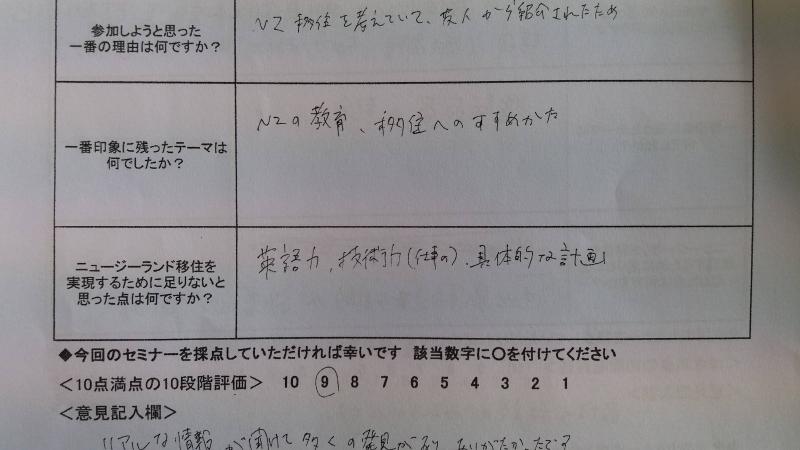 参加しようと思った
一番の理由は何ですか？
NZ 移住を考えていて、友人から紹介されたため
一番印象に残ったテーマは
何でしたか？
NZの教育、移住へのすすめかた
ニュージーランド移住を
実現するために足りないと
思った点は何ですか？
英語力、技術力(仕事の)、具体的な計画
◆今回のセミナーを採点していただければ幸いです 該当数字に〇を付けてください
＜10点満点の10段階評価＞ 10 9 8 7 6 5 4 3 2 1
＜意見記入欄＞
リアルな情報が聞けて多くの発見があり、ありがたかったです